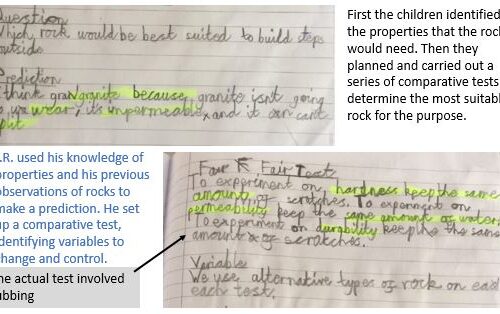 Question
Which rock would be best suited to build steps
outside
Prediction
I think gran granite because granite isnt going
to wear, its impermeable, and it can cant
split
First the children identified
the properties that the rock
would need. Then they
planned and carried out a
series of comparative tests
determine the most suitabl
rock for the purpose.
.R. used his knowledge of
properties and his previous
observations of rocks to
make a prediction. He set
up a comparative test,
identifying variables to
change and control.
he actual test involved
ubbing
Fair Fair Test
To experiment on, hardness keep the same
amount of scratches. To experiment on
permeability keep the same amount of water.
To experiment on durability keep the same
amount of scratches.
Variable
We use alternative types of rock on each
each test.